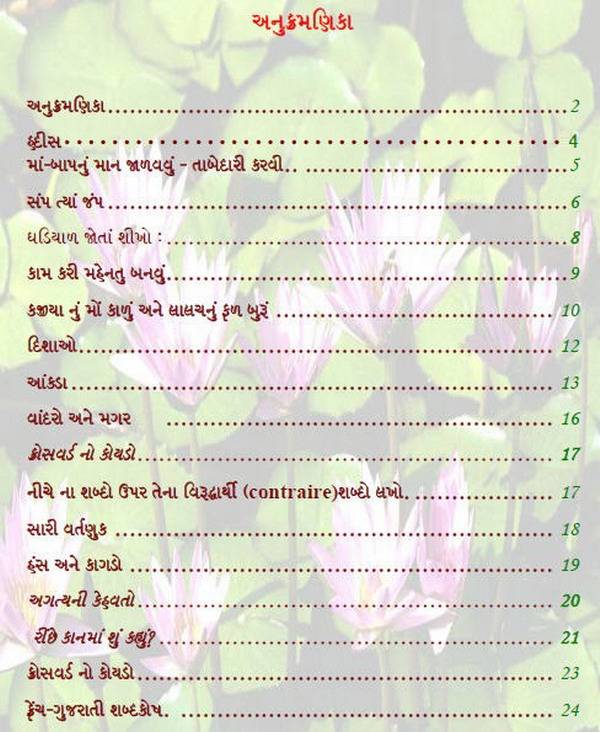 અનુક્રમણિકા
અનુક્રમણિકા.......................................................... 2
હદીસ.......................................................... 4
માં-બાપનું માન જાળવવું - તાબેદારી કરવી.. .................................. 5
સંપ ત્યાં જંપ .......................................................... 6
ઘડિયાળ જોતાં શીખો : .................................................. 8
કામ કરી મહેનતુ બનવું.................................................. 9
કજીયા નું મોં કાળું અને લાલચનું ફળ બુરૂં .................................. 10
દિશાઓ.......................................................... 12
આંકડા .......................................................... 13
વાંદરો અને મગર .................................................. 16
ક્રોસવર્ડ નો કોયડો.................................................. 17
નીચે ના શબ્દો ઉપર તેના વિરૂદ્ધાર્થી (contraire)શબ્દો લખો. .................. 17
સારી વર્તણુક .................................................. 18
હંસ અને કાગડો .................................................. 19
અગત્યની કેહવતો.................................................. 20
રીંછે કાનમાં શું કહ્યું? .................................................. 21
ક્રોસવર્ડ નો કોયડો.................................................. 23
ફ્રેંચ-ગુજરાતી શબ્દકોષ. .................................................. 24